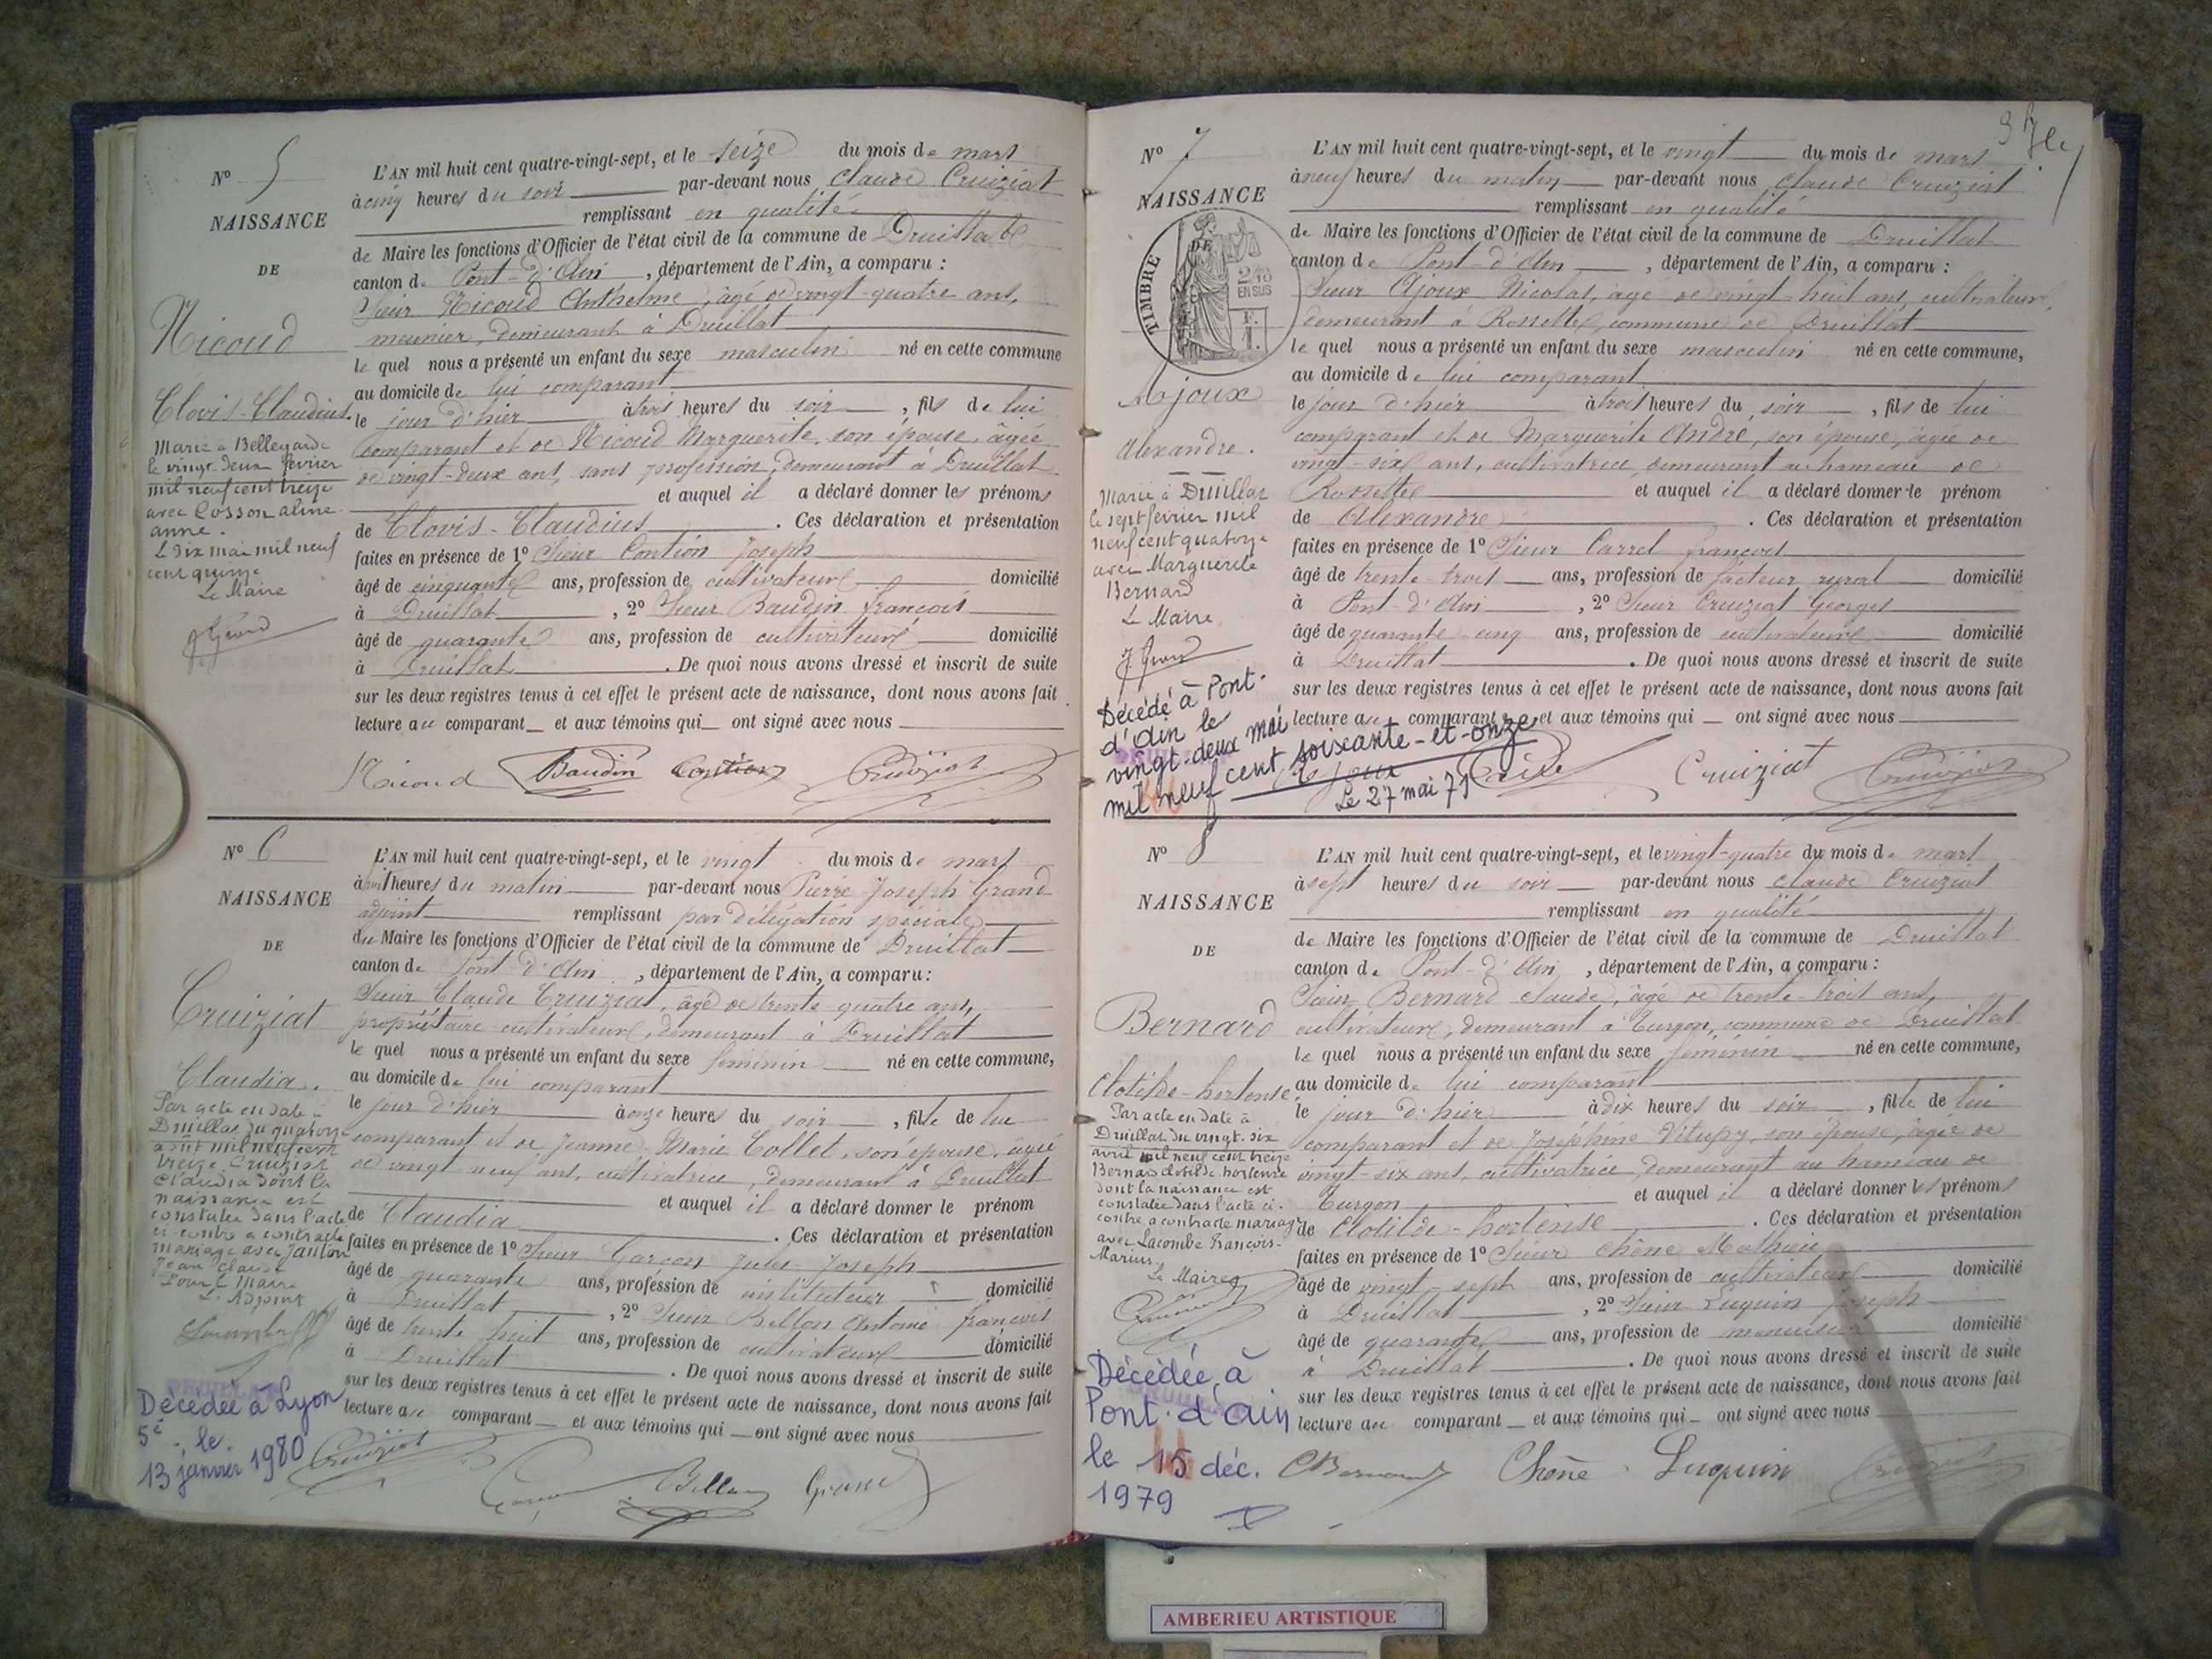 N° 5
NAISSANCE
DE
Nicoud
Clovis-Claudius.
Marié à Bellegarde
le vingt-deux février
mil neuf cent treize
avec Cosson aline
anne.
Le dix mai mil neuf
cent quinze
Le Maire
L'AN mil huit cent quatre-vingt-sept, et le seize du mois de mars
à cinq heures du soir par-devant nous Claude Cruiziat
remplissant en qualité
de Maire les fonctions d'Officier de l'état civil de la commune de Druillat
canton de Pont-d'Ain, département de l'Ain, a comparu :
Sieur Nicoud Anthelme, âgé de vingt-quatre ans,
meunier, demeurant à Druillat
le quel nous a présenté un enfant du sexe masculin né en cette commune
au domicile de lui comparant
le jour d'hier à trois heures du soir, fils de lui
comparant et de Nicoud Marguerite, son épouse, âgée
de vingt-deux ans, sans profession, demeurant à Druillat
et auquel il a déclaré donner les prénoms
de Clovis-Claudius. Ces déclaration et présentation
faites en présence de 1° Sieur Contion Joseph
âgé de cinquante ans, profession de cultivateur domicilié
à Druillat, 2° Sieur Baudin françois
âgé de quarante ans, profession de cultivateur domicilié
à Druillat. De quoi nous avons dressé et inscrit de suite
sur les deux registres tenus à cet effet le présent acte de naissance, dont nous avons fait
lecture au comparant et aux témoins qui ont signé avec nous
Nicoud Baudin Contion Cruiziat
N° 6
NAISSANCE
DE
Cruiziat
Claudia.
Par acte en date à
Druillat du quatorze
août mil neuf cent
treize, Cruiziat
Claudia dont la
naissance est
constatée dans l'acte
ci-contre a contracté
mariage avec Janton
Jean Claude
Pour le Maire
L'Adjoint
Décédée à Lyon
5e, le
13 janvier 1980
L'AN mil huit cent quatre-vingt-sept, et le vingt du mois de mars
à huit heures du matin par-devant nous Pierre-Joseph Grand
adjoint remplissant par délégation spéciale
du Maire les fonctions d'Officier de l'état civil de la commune de Druillat
canton de Pont-d'Ain, département de l'Ain, a comparu :
Sieur Claude Cruiziat, âgé de trente-quatre ans,
propriétaire-cultivateur, demeurant à Druillat
le quel nous a présenté un enfant du sexe féminin né en cette commune,
au domicile de lui comparant
le jour d'hier à onze heures du soir, fille de lui
comparant et de Jeanne-Marie Collet, son épouse, âgée
de vingt-neuf ans, cultivatrice, demeurant à Druillat
et auquel il a déclaré donner le prénom
de Claudia. Ces déclaration et présentation
faites en présence de 1° Sieur Garçon Jules-Joseph
âgé de quarante ans, profession de instituteur domicilié
à Druillat, 2° Sieur Bellon Antoine françois
âgé de trente huit ans, profession de cultivateur domicilié
à Druillat. De quoi nous avons dressé et inscrit de suite
sur les deux registres tenus à cet effet le présent acte de naissance, dont nous avons fait
lecture au comparant et aux témoins qui ont signé avec nous
Cruiziat Bellon Grand
N° 7
NAISSANCE
TIMBRE DE
EN SUS
Ajoux
Alexandre.
Marié à Druillat
le sept février mil
neuf cent quatorze
avec Marguerite
Bernard
Le Maire
Décédé à Pont-
d'Ain le
vingt-deux mai
mil neuf cent soixante-et-onze
Le 27 mai 71
L'AN mil huit cent quatre-vingt-sept, et le vingt du mois de mars
à neuf heures du matin par-devant nous Claude Cruiziat
remplissant en qualité
de Maire les fonctions d'Officier de l'état civil de la commune de Druillat
canton de Pont-d'Ain, département de l'Ain, a comparu :
Sieur Ajoux Nicolas, âgé de vingt-huit ans, cultivateur,
demeurant à Rossettes, commune de Druillat
le quel nous a présenté un enfant du sexe masculin né en cette commune,
au domicile de lui comparant
le jour d'hier à trois heures du soir, fils de lui
comparant et de Marguerite André, son épouse, âgée de
vingt-six ans, cultivatrice, demeurant au hameau de
Rossettes et auquel il a déclaré donner le prénom
de Alexandre. Ces déclaration et présentation
faites en présence de 1° Sieur Carrel françois
âgé de trente-trois ans, profession de facteur rural domicilié
à Pont-d'Ain, 2° Sieur Cruiziat Georges
âgé de quarante-cinq ans, profession de cultivateur domicilié
à Druillat. De quoi nous avons dressé et inscrit de suite
sur les deux registres tenus à cet effet le présent acte de naissance, dont nous avons fait
lecture au comparant et aux témoins qui ont signé avec nous
Ajoux Cruiziat Cruiziat
N° 8
NAISSANCE
DE
Bernard
Clotilde-hortense
Par acte en date à
Druillat du vingt-six
avril mil neuf cent treize
Bernard clotilde hortense
dont la naissance est
constatée dans l'acte ci-
contre a contracté mariage
avec Lacombe François-
Marius.
Le Maire
Décédée à
Pont-d'ain
le 15 déc.
1979
L'AN mil huit cent quatre-vingt-sept, et le vingt-quatre du mois de mars
à sept heures du soir par-devant nous Claude Cruiziat
remplissant en qualité
de Maire les fonctions d'Officier de l'état civil de la commune de Druillat
canton de Pont-d'Ain, département de l'Ain, a comparu :
Sieur Bernard Claude, âgé de trente-trois ans,
cultivateur, demeurant à Turgon, commune de Druillat
le quel nous a présenté un enfant du sexe féminin né en cette commune,
au domicile de lui comparant
le jour d'hier à dix heures du soir, fille de lui
comparant et de Joséphine Vitupy, son épouse, âgée de
vingt-six ans, cultivatrice, demeurant au hameau de
Turgon et auquel il a déclaré donner les prénoms
de Clotilde-hortense. Ces déclaration et présentation
faites en présence de 1° Sieur Chêne Mathieu
âgé de vingt-sept ans, profession de cultivateur domicilié
à Druillat, 2° Sieur Luquin Joseph
âgé de quarante ans, profession de menuisier domicilié
à Druillat. De quoi nous avons dressé et inscrit de suite
sur les deux registres tenus à cet effet le présent acte de naissance, dont nous avons fait
lecture au comparant et aux témoins qui ont signé avec nous
CBernard Chêne Luquin Cruiziat
AMBERIEU ARTISTIQUE